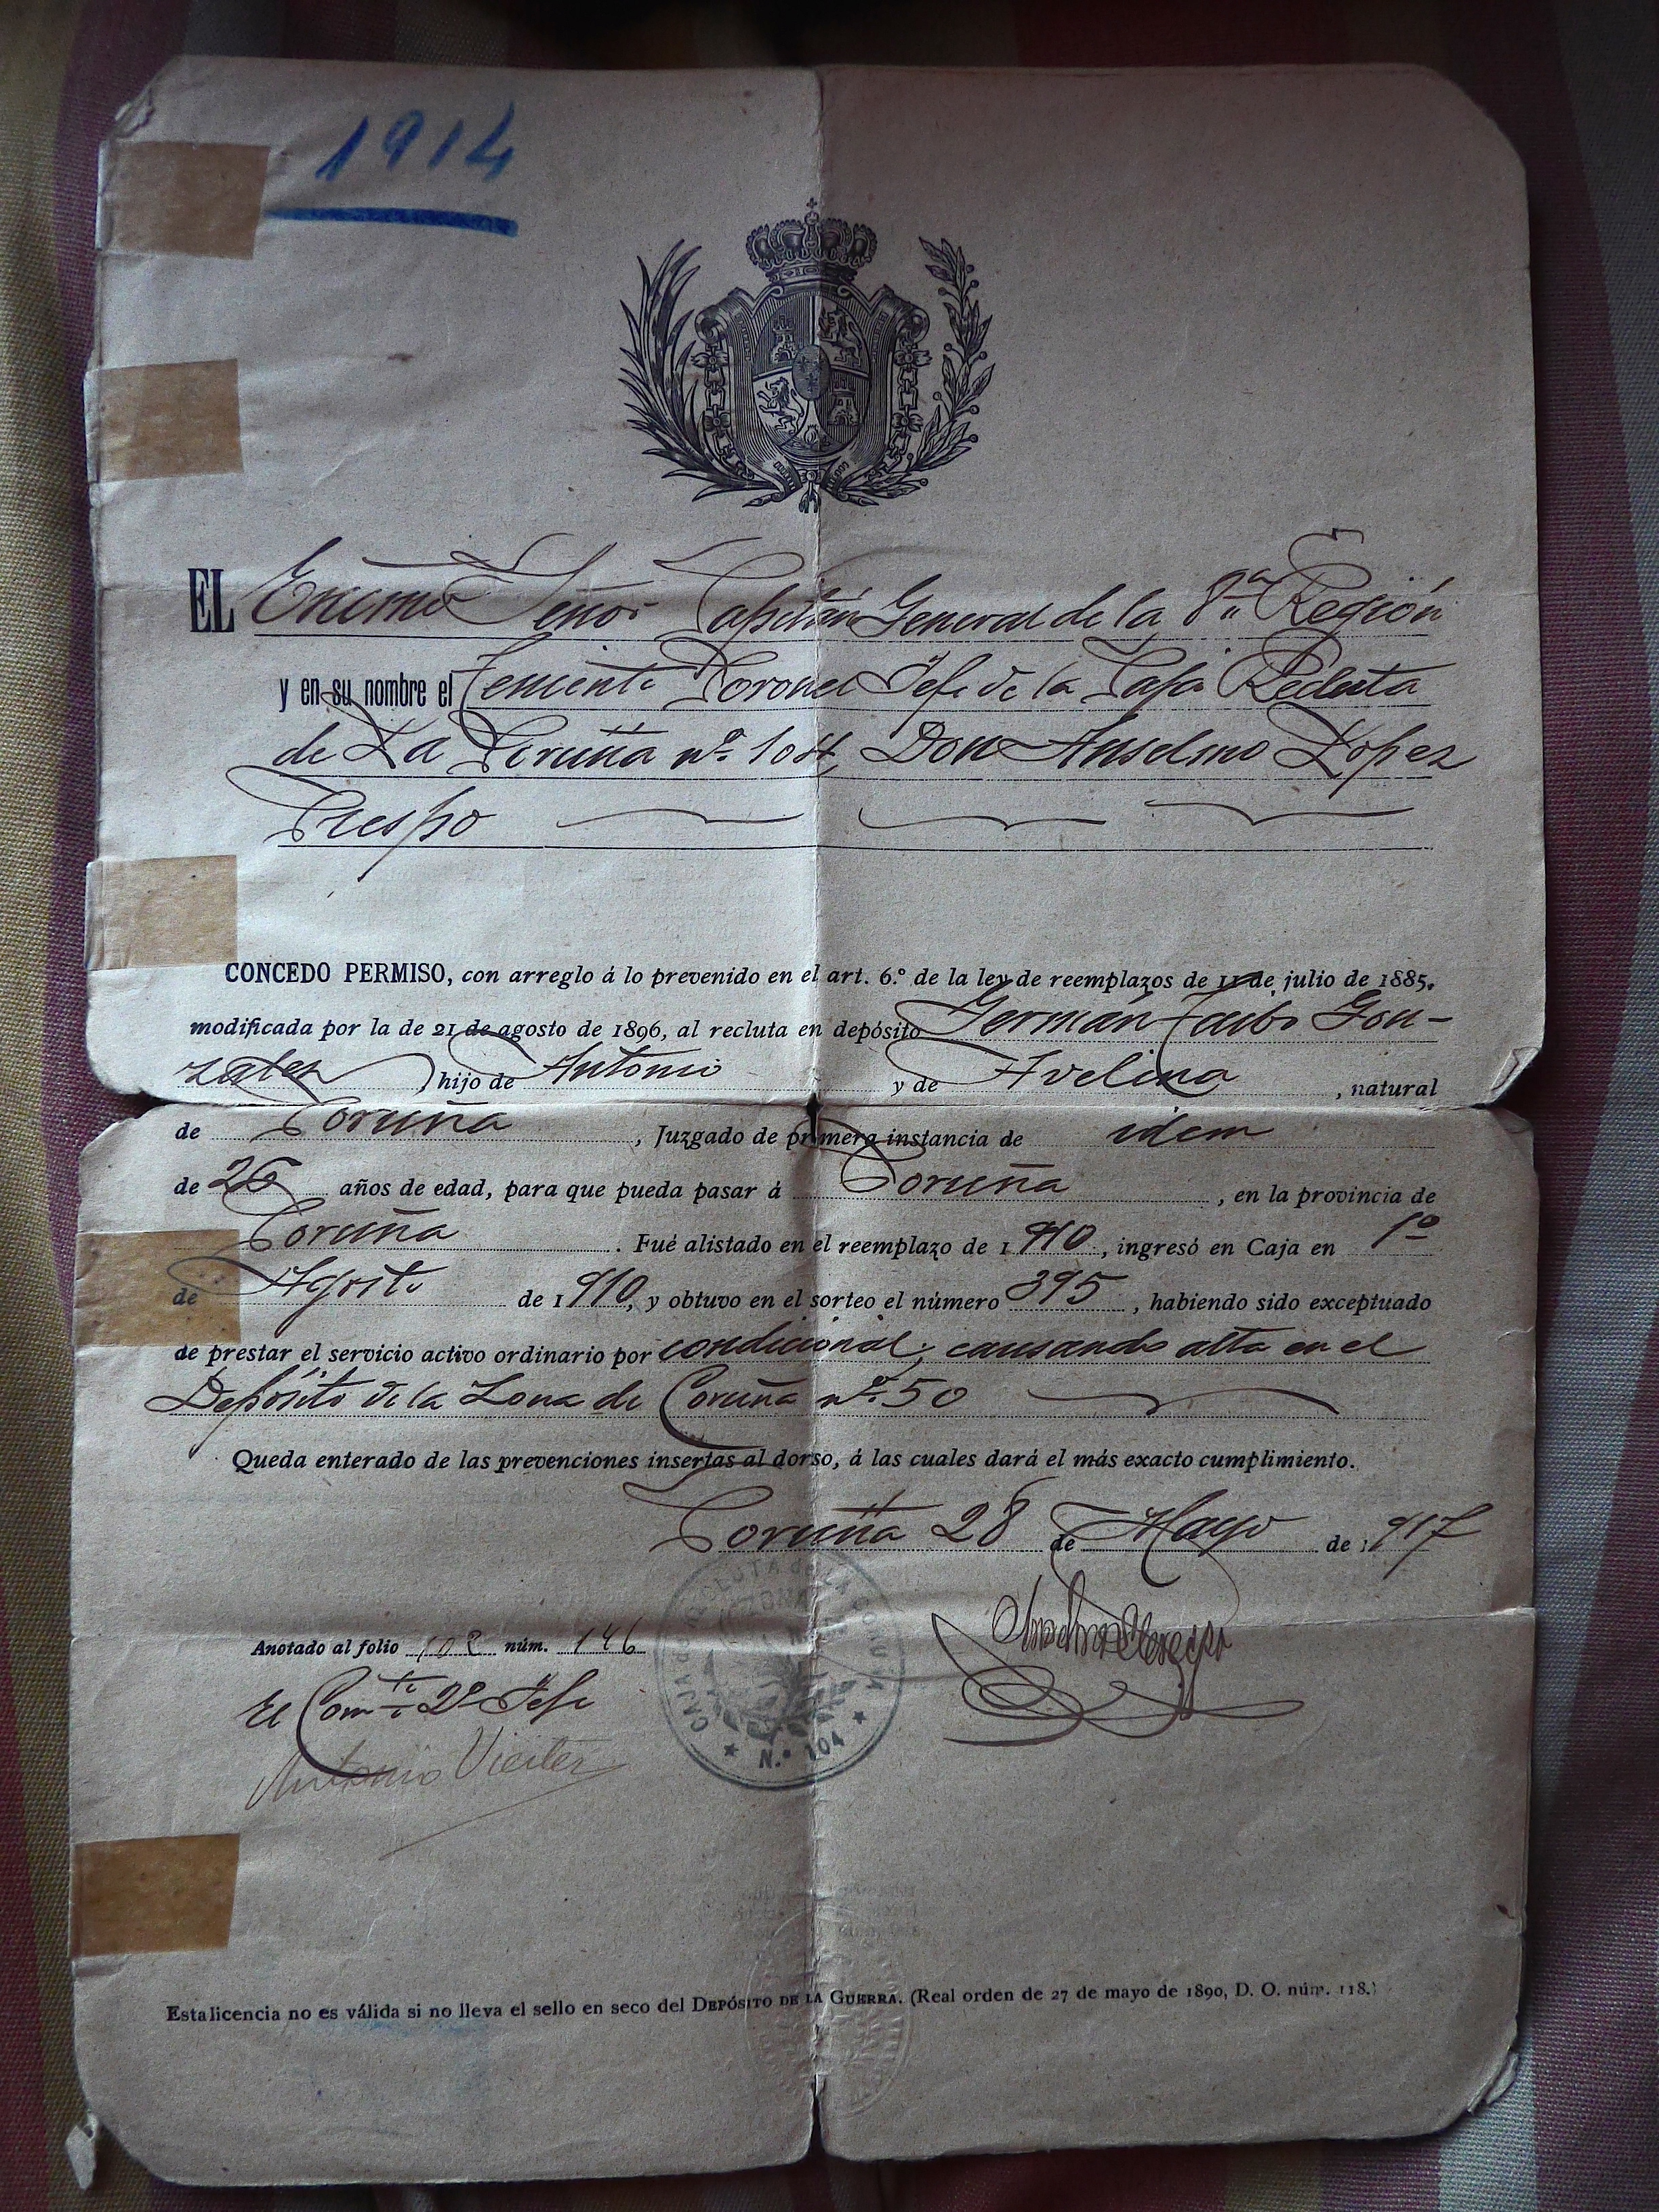 1914
EL Excmo Señor Capitán General de la 8ª Región
y en su nombre el Teniente Coronel Jefe de la Caja Recluta
de La Coruña nº 104, Don Anselmo Lopez
Crespo
CONCEDO PERMISO, con arreglo á lo prevenido en el art. 6.º de la ley de reemplazos de 11 de julio de 1885,
modificada por la de 21 de agosto de 1896, al recluta en depósito Germán Taibo Gon-
zalez, hijo de Antonio y de Avelina, natural
de Coruña, Juzgado de primera instancia de idem
de 26 años de edad, para que pueda pasar á Coruña, en la provincia de
Coruña. Fué alistado en el reemplazo de 1910, ingresó en Caja en 1º
de Agosto de 1910, y obtuvo en el sorteo el número 395, habiendo sido exceptuado
de prestar el servicio activo ordinario por condicional, causando alta en el
Depósito de la Zona de Coruña nº 50
Queda enterado de las prevenciones insertas al dorso, á las cuales dará el más exacto cumplimiento.
Coruña 28 de Mayo de 1917
Anotado al folio 102 núm. 146
El Comte 2º Jefe
Antonio Vieites
CAJA DE RECLUTA DE LA CORUÑA
ZONA
★ N.º 104 ★
Esta licencia no es válida si no lleva el sello en seco del DEPÓSITO DE LA GUERRA. (Real orden de 27 de mayo de 1890, D. O. núm. 118.)